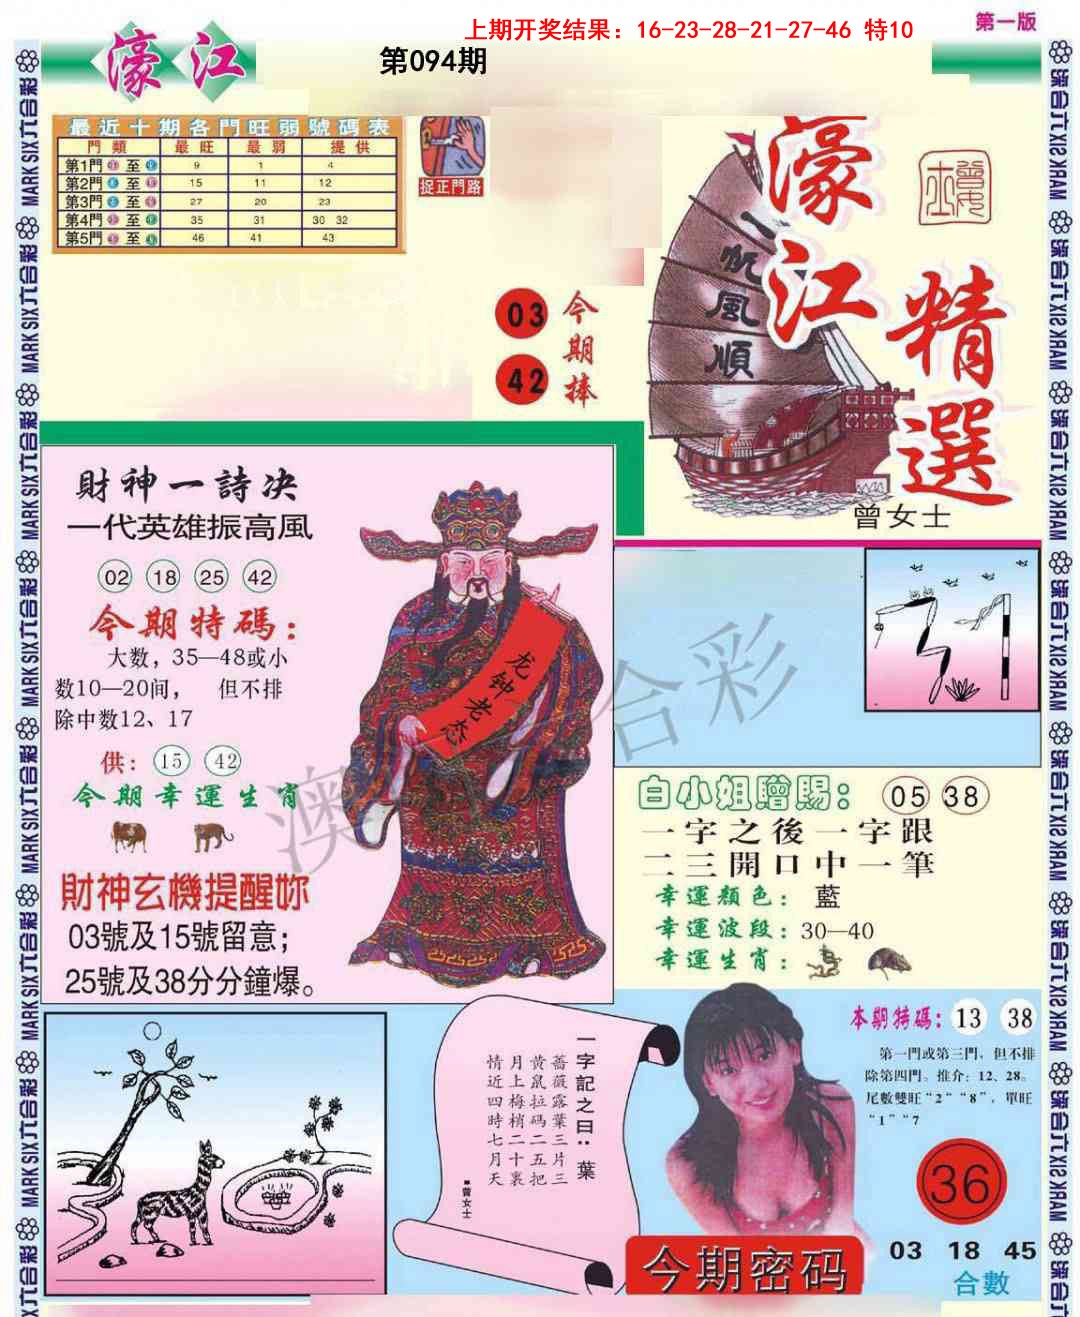 上期开奖结果：16-23-28-21-27-46 特10
第一版
濠江
第094期
最近十期各門旺弱號碼表
門類 最旺 最弱 提供
第1門 至 9 1 4
第2門 至 15 11 12
第3門 至 27 20 23
第4門 至 35 31 30 32
第5門 至 46 41 43
捉正門路
03
42
今期捧
一帆風順
濠江
精選
曾女士
財神一詩决
一代英雄振高風
02 18 25 42
今期特碼：
大数，35—48或小
数10—20间， 但不排
除中数12、17
供： 15 42
今期幸運生肖
财神玄機提醒妳
03號及15號留意；
25號及38分分鐘爆。
龙钟老态
白小姐贈賜： 05 38
一字之後一字跟
二三開口中一筆
幸運顏色：藍
幸運波段：30—40
幸運生肖：
一字記之曰：葉
薔薇露葉三片三
黄鼠拉碼二五把
月上梅梢二十裏
情近四時七月天
■曾女士
本期特碼：13 38
第一門或第三門，但不排
除第四門。推介：12、28。
尾數雙旺“2”“8”，單旺
“1”“7
36
03 18 45
合數
今期密码
MARK SIX六合彩
澳
合彩